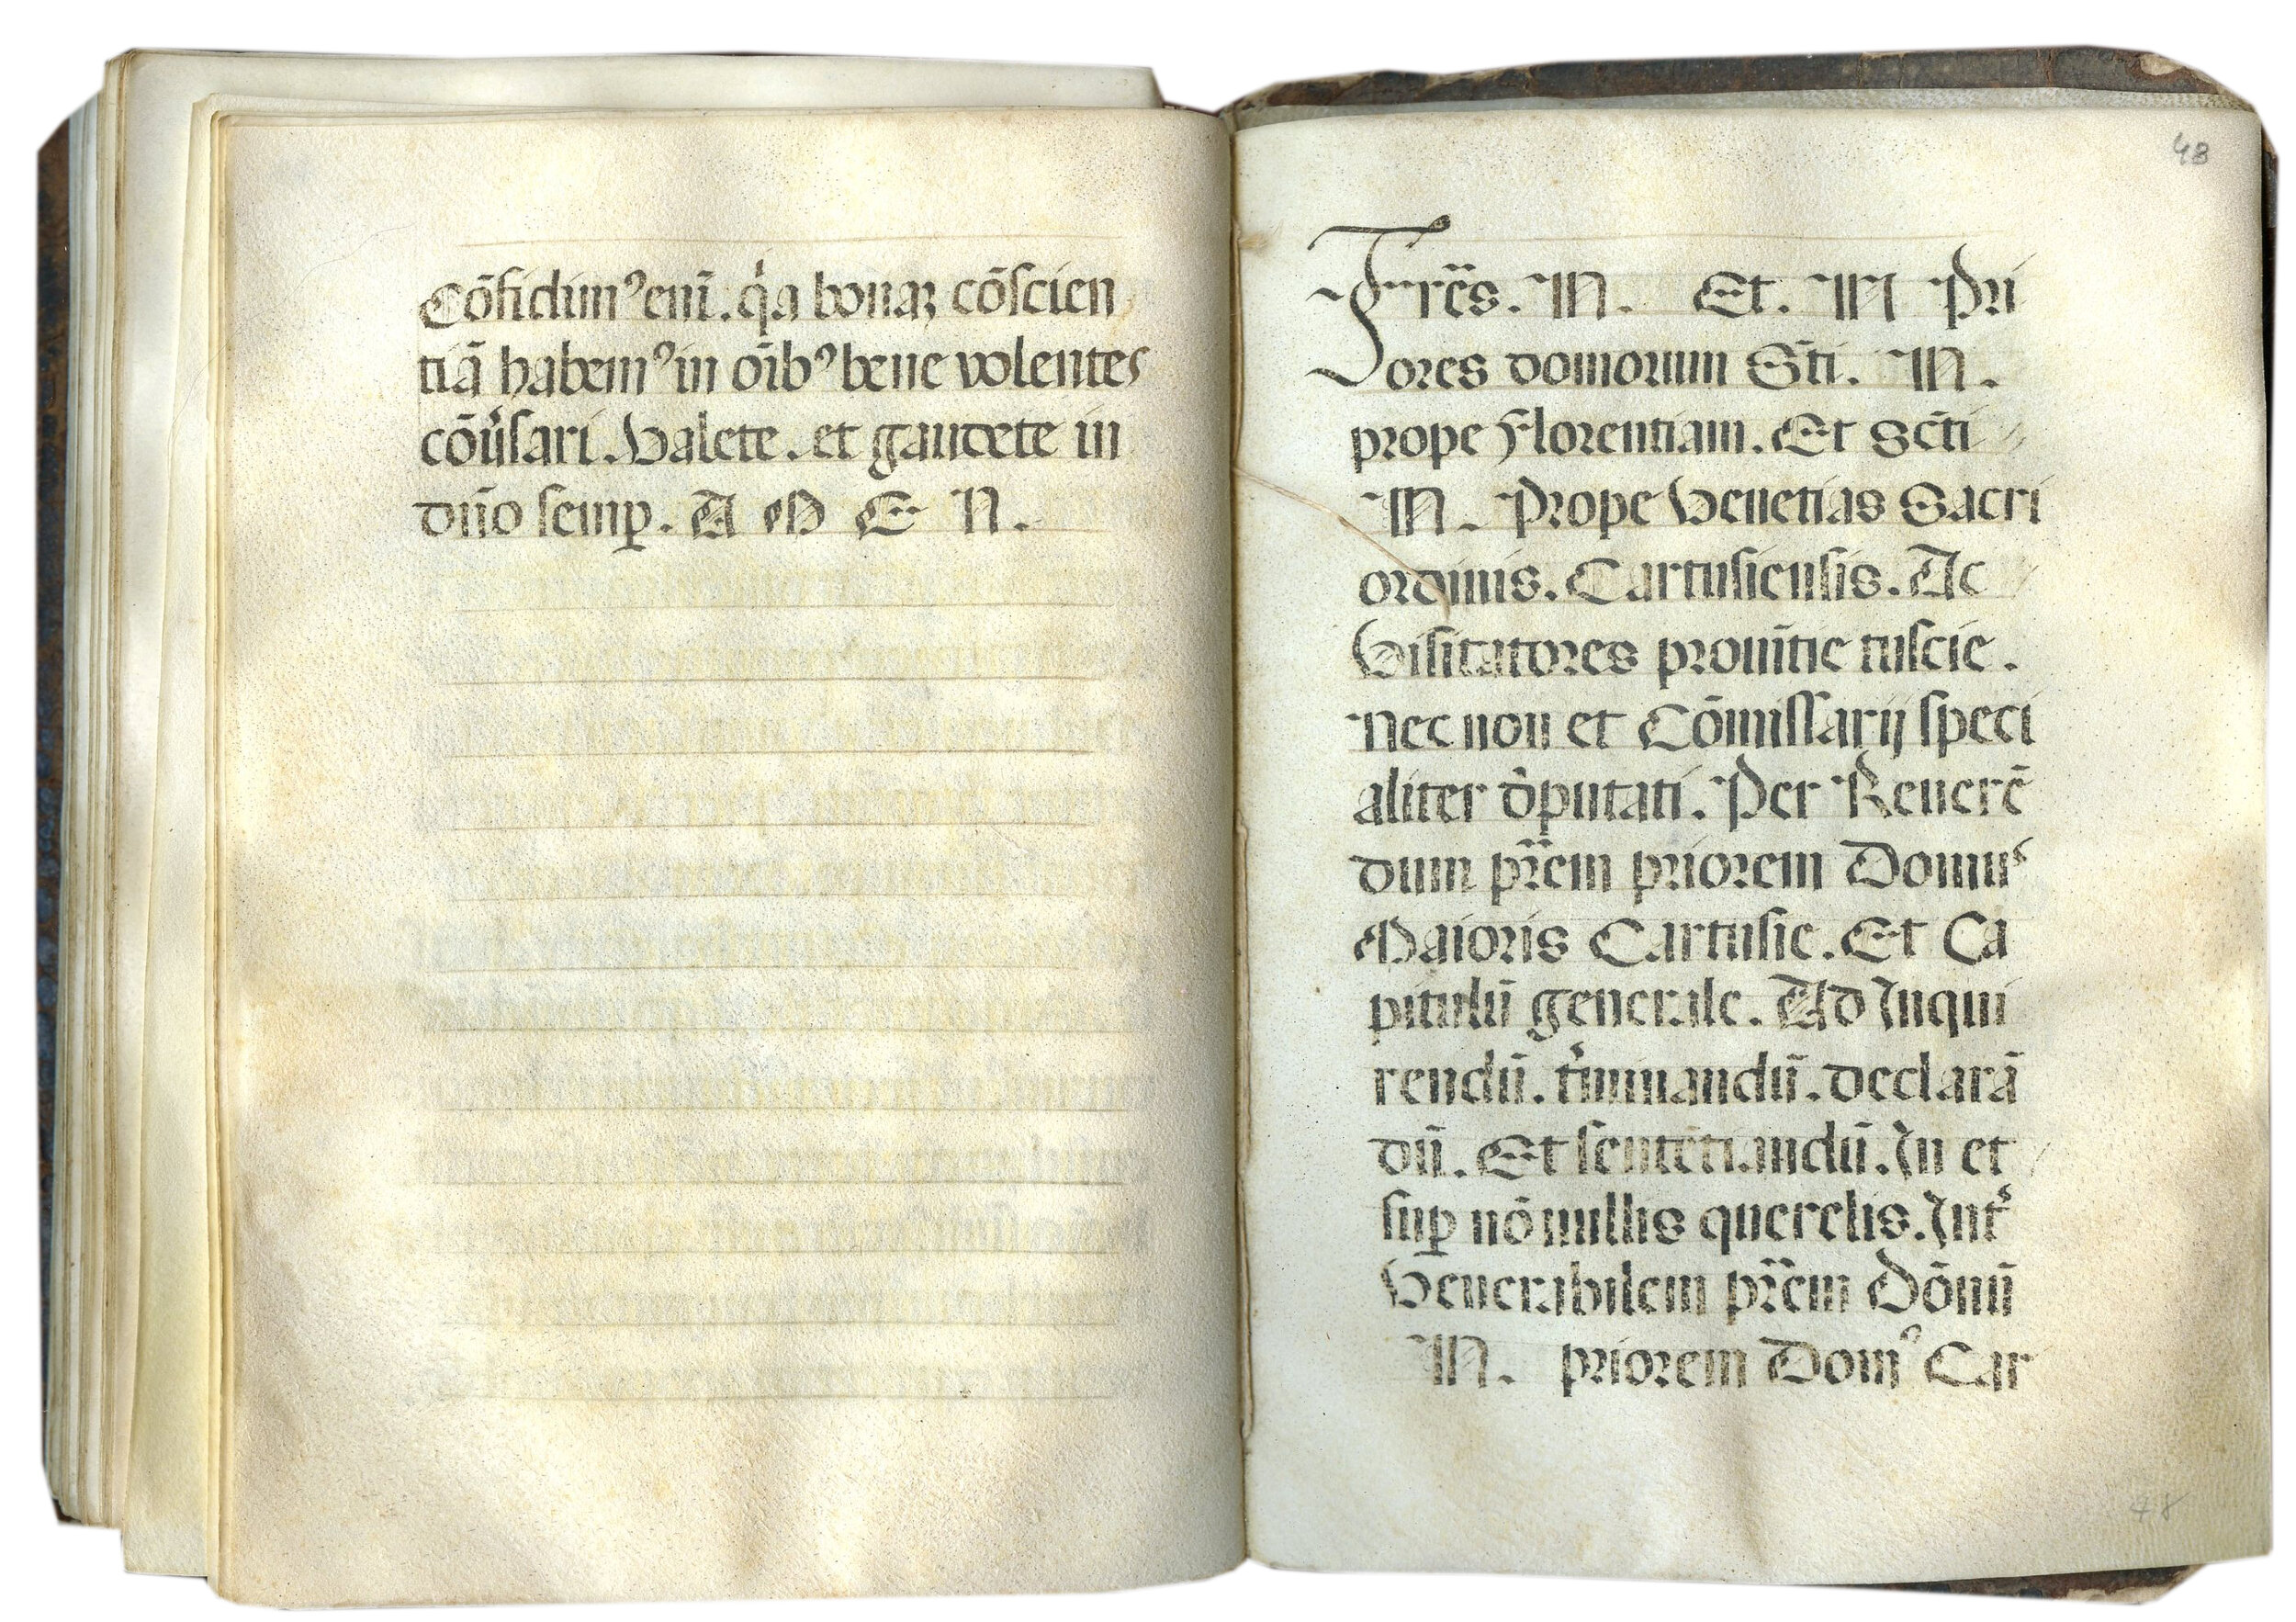 Cōfidimꝰ enī. qͥa bonaꝫ cōscien
tiā habemꝰ in oīb9 bene volentes
cōu̓sari. Valete. et gaudete in
dn̄o semꝑ. A M E N.
48
Fr̄es. N. Et. N Pri
ores domorum Sti. N.
prope Florentiam. Et Scti
N. Prope Venetias Sacri
ordinis. Cartusiensis. Ac
Visitatores prouītie tuscie.
Nec non et Cōmissarij speci
aliter d̓putati. Per Reuerē
dum pr̄em priorem Domus
Maioris Cartusie. Et Ca
pitulū generale. Ad Inqui
rendū. t̓minandū. declarā
dū. Et sentētiandū. In et
suꝑ nōnullis querelis. Int̓
Venerabilem pr̄em Dōnū
N. priorem Domꝰ Car
48